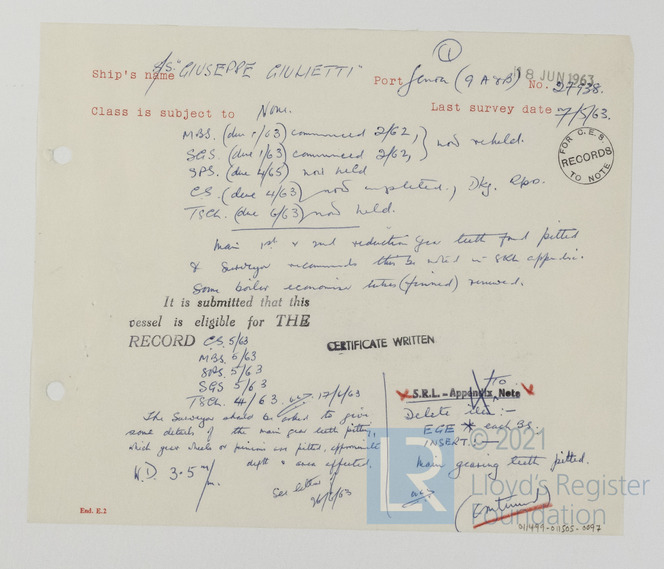 ①
18 JUN 1963
Ship's name S/S. "GIUSEPPE GIULIETTI" Port Genoa (9A&B) No. 27938.
Class is subject to None. Last survey date 7/5/63.
MBS. (due 1/63) commenced 2/62, } now reheld.
SGS. (due 1/63) commenced 2/62, }
SPS. (due 4/65) now held
CS. (due 4/63) now completed, Dkg. Rpo.
TSCh. (due 6/63) now held.
FOR C.E.S.
RECORDS
TO NOTE
Main 1st & 2nd reduction gear teeth found pitted
& Surveyor recommends this be noted in SRL appendix.
Some boiler economiser tubes (finned) renewed.
It is submitted that this
vessel is eligible for THE
RECORD CS. 5/63
MBS. 5/63
SPS 5/63
SGS 5/63
TSCh. 4/63. 17/6/63
CERTIFICATE WRITTEN
The Surveyor should be asked to give
some details of the main gear teeth pitting,
which gear wheels or pinions are pitted, approximate
depth & area affected.
K.D. 3.5 m/m.
See letter
26/6/63
To
S.R.L. - Appendix Note
Delete item :-
EGE * each BS.
INSERT. :-
Main gearing teeth pitted.
(continued)
End. E.2
LR
© 2021
Lloyd's Register
Foundation
011499-011505-0097